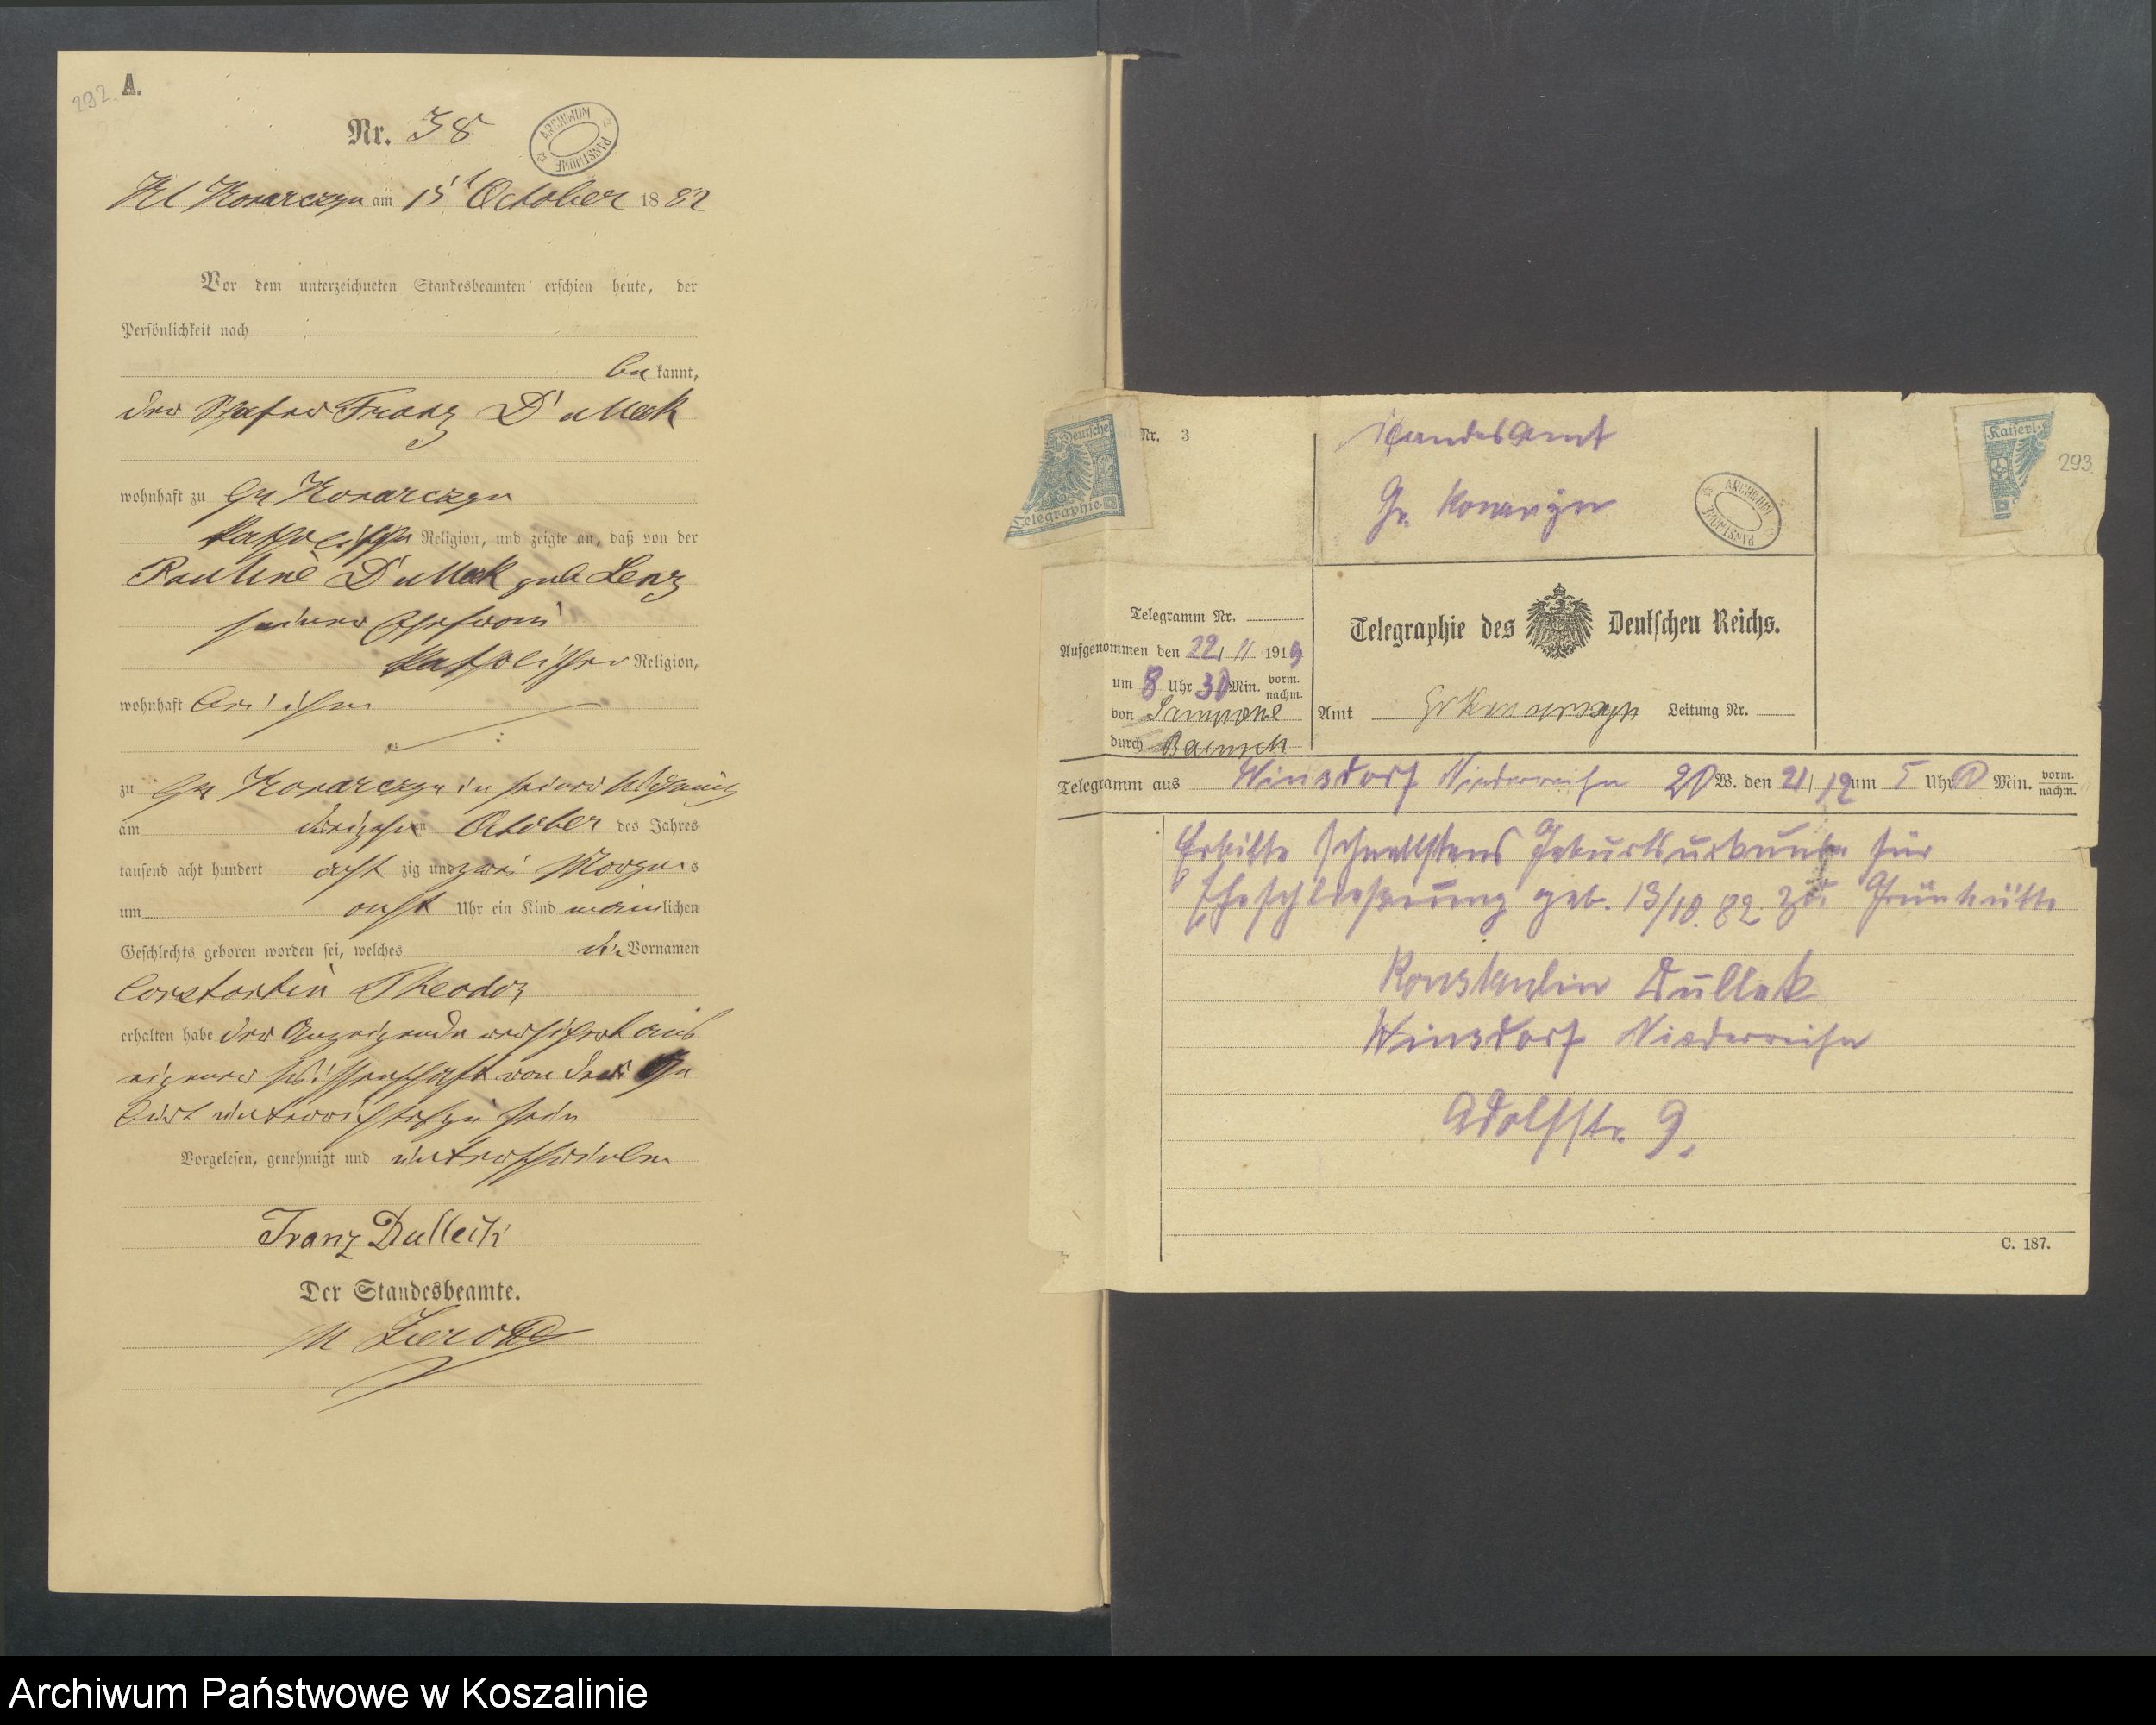 292.
A.
Nr. 38
ARCHIWUM PAŃSTWOWE
Kl Konarczyn am 15 October 18 82
Vor dem unterzeichneten Standesbeamten erschien heute, der
Persönlichkeit nach
be kannt,
der Franz Dulleck
wohnhaft zu Gr Konarczyn
katholischer Religion, und zeigte an, daß von der
Pauline Dulleck geb Lenz
seiner Ehefrau
katholischer Religion,
wohnhaft bei ihm
zu Gr Konarczyn in seiner Wohnung
am dreizehnten October des Jahres
tausend acht hundert acht zig und zwei Morgens
um acht Uhr ein Kind männlichen
Geschlechts geboren worden sei, welches die Vornamen
Constantin Theodor
erhalten habe der Anzeigende versichert aus
eigener Wissenschaft von der Ge
burt unterrichtet zu sein
Vorgelesen, genehmigt und unterschrieben
Franz Dulleck
Der Standesbeamte.
Nr. 3
Deutsche
Telegraphie
Standesamt
Gr. Konarzyn
ARCHIWUM PAŃSTWOWE
Kaiserl.
293.
Telegramm Nr.
Aufgenommen den 22/ 11 1919
um 8 Uhr 30 Min. vorm. nachm.
von
durch
Telegraphie des Deutschen Reichs.
Amt Gr Konarczyn Leitung Nr.
Telegramm aus Hinsdorf Niederrhein 20 W. den 21/ 12 um 5 Uhr Min. vorm. nachm.
Erbitte schnellstens Geburtsurkunde für
Eheschliessung geb. 13/10. 82. zu Grünhütte
Konstantin Dullek
Hinsdorf Niederrhein
Adolfstr. 9.
C. 187.
Archiwum Państwowe w Koszalinie